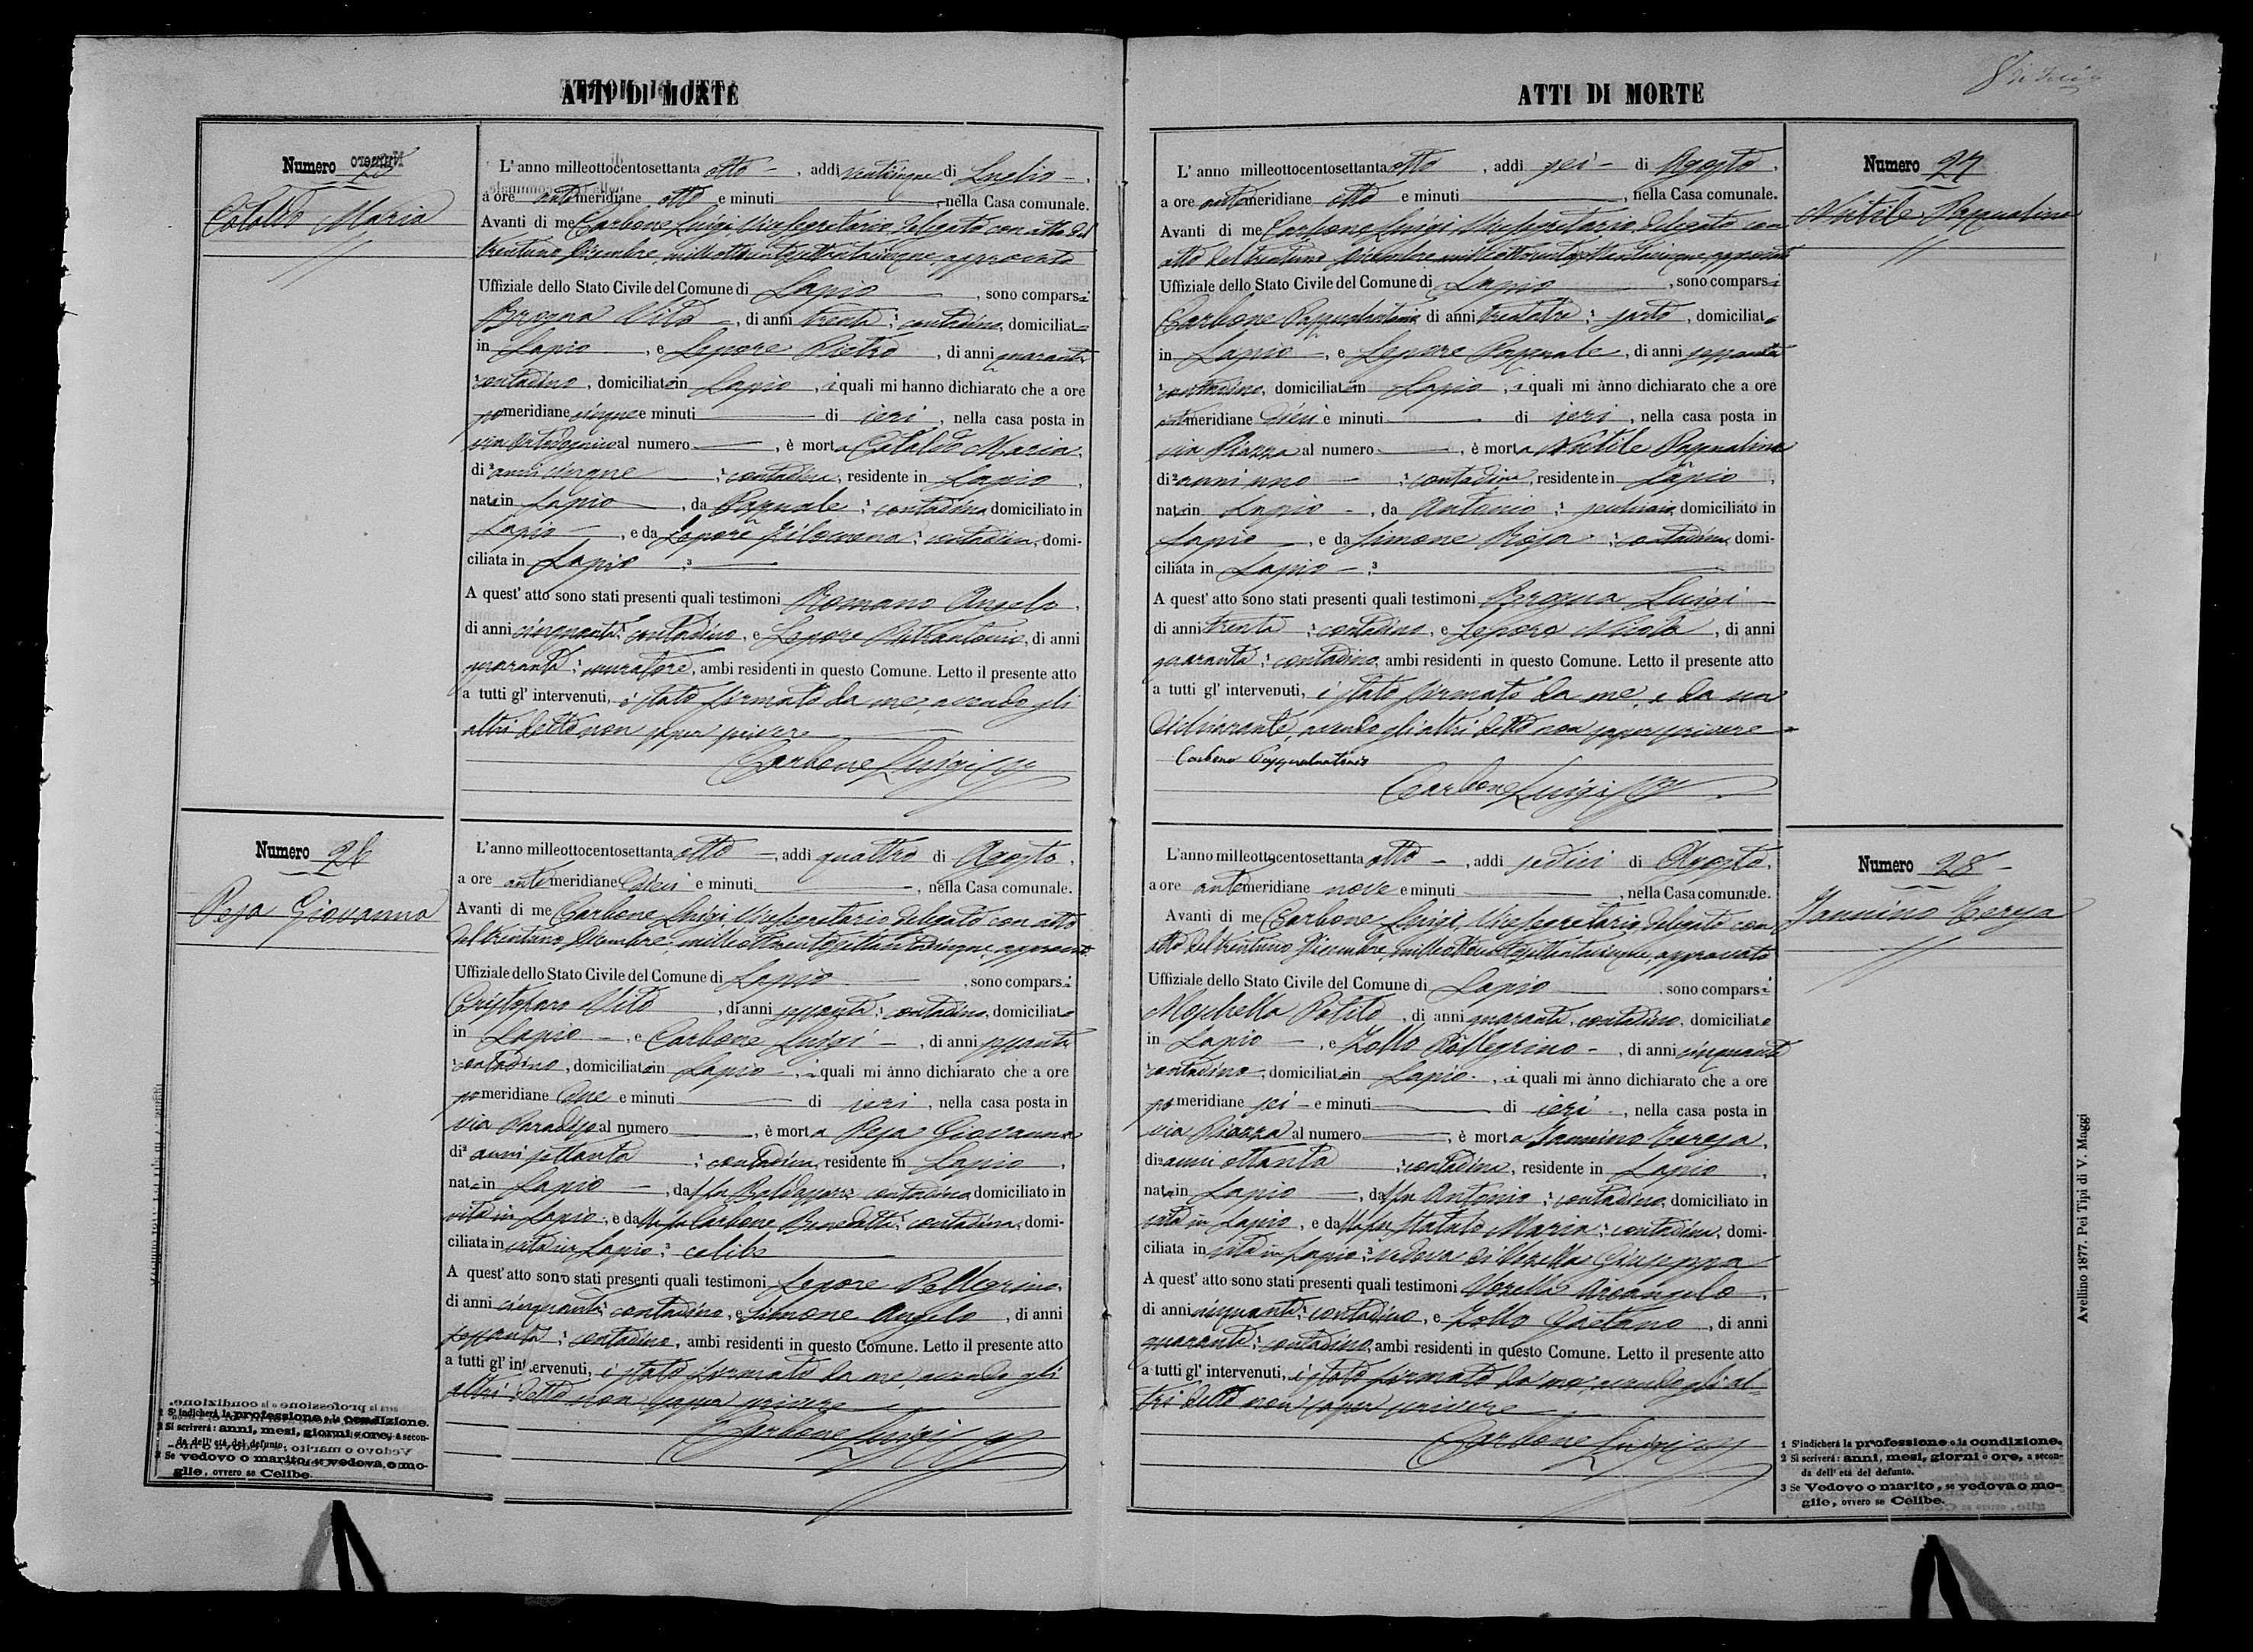 ATTI DI MORTE
Numero 25
Cataldo Maria
L'anno milleottocentosettanta otto, addi venticinque di Luglio,
a ore antemeridiane otto e minuti, nella Casa comunale.
Avanti di me Carbone Luigi Vice Segretario delegato con atto del
trentuno Dicembre, milleottocentosettantacinque, approvato
Uffiziale dello Stato Civile del Comune di Lapio, sono comparsi
Brogna Vito, di anni trenta; contadino, domiciliato
in Lapio, e Lepore Pietro, di anni quaranta
contadino, domiciliato in Lapio, i quali mi hanno dichiarato che a ore
pomeridiane cinque e minuti di ieri, nella casa posta in
via al numero, è morta Cataldo Maria,
di anni cinque; contadina, residente in Lapio,
nata in Lapio, da Pasquale; contadino domiciliato in
Lapio, e da Lepore Filomena; contadina, domi-
ciliata in Lapio;
A quest' atto sono stati presenti quali testimoni Romano Angelo,
di anni cinquanta; contadino, e Lepore, di anni
quaranta; muratore, ambi residenti in questo Comune. Letto il presente atto
a tutti gl' intervenuti, è stato firmato da me, avendo gli
altri detto non saper scrivere
Carbone Luigi
Numero 26
Pesa Giovanna
L'anno milleottocentosettanta otto, addi quattro di Agosto,
a ore antemeridiane dieci e minuti, nella Casa comunale.
Avanti di me Carbone Luigi Vice Segretario delegato con atto
del trentuno Dicembre, milleottocentosettantacinque, approvato
Uffiziale dello Stato Civile del Comune di Lapio, sono comparsi
Cristofaro Vito, di anni sessanta; contadino, domiciliato
in Lapio, e Carbone Luigi, di anni sessanta
contadino, domiciliato in Lapio, i quali mi ànno dichiarato che a ore
pomeridiane due e minuti di ieri, nella casa posta in
via Paradiso al numero, è morta Pesa Giovanna
di anni settanta; contadina, residente in Lapio,
nata in Lapio, da fu Baldassare; contadino domiciliato in
vita in Lapio, e da fu Carbone Benedetta; contadina, domi-
ciliata in vita in Lapio; celibe
A quest' atto sono stati presenti quali testimoni Lepore Pellegrino,
di anni cinquanta; contadino, e Simone Angelo, di anni
sessanta; contadino, ambi residenti in questo Comune. Letto il presente atto
a tutti gl' intervenuti, è stato firmato da me, avendo gli
altri detto non saper scrivere
Carbone Luigi
1 S'indicherà la professione o la condizione.
2 Si scriverà: anni, mesi, giorni o ore, a secon-
da dell' età del defunto.
3 Se vedovo o marito, se vedova o mo-
glie, ovvero se Celibe.
ATTI DI MORTE
Numero 27
Nutile Pasqualina
L'anno milleottocentosettanta otto, addi sei di Agosto,
a ore antemeridiane otto e minuti, nella Casa comunale.
Avanti di me Carbone Luigi Vice Segretario delegato con
atto del trentuno Dicembre milleottocentosettantacinque approvato
Uffiziale dello Stato Civile del Comune di Lapio, sono comparsi
Carbone Pasqualantonio di anni trentatre; sarto, domiciliato
in Lapio, e Lepore Pasquale, di anni sessanta
contadino, domiciliato in Lapio, i quali mi ànno dichiarato che a ore
antemeridiane dieci e minuti di ieri, nella casa posta in
via Piazza al numero, è morta Nutile Pasqualina
di anni uno; contadina, residente in Lapio,
nata in Lapio, da Antonio; domiciliato in
Lapio, e da Simone Rosa; contadina, domi-
ciliata in Lapio;
A quest' atto sono stati presenti quali testimoni Brogna Luigi
di anni trenta; contadino, e Lepore Nicola, di anni
quaranta; contadino, ambi residenti in questo Comune. Letto il presente atto
a tutti gl' intervenuti, è stato firmato da me, e da un
dichiarante, avendo gli altri detto non saper scrivere
Carbone Pasqualantonio
Carbone Luigi
Numero 28
Iannino Teresa
L'anno milleottocentosettanta otto, addi sedici di Agosto,
a ore antemeridiane nove e minuti, nella Casa comunale.
Avanti di me Carbone Luigi, Vice Segretario delegato con
atto del trentuno Dicembre, milleottocentosettantacinque, approvato
Uffiziale dello Stato Civile del Comune di Lapio, sono comparsi
Moschella Potito, di anni quaranta, contadino, domiciliato
in Lapio, e Zollo Pellegrino, di anni cinquanta
contadino, domiciliato in Lapio, i quali mi ànno dichiarato che a ore
pomeridiane sei e minuti di ieri, nella casa posta in
via Piazza al numero, è morta Iannino Teresa,
di anni ottanta; contadina, residente in Lapio,
nata in Lapio, da fu Antonio; contadino, domiciliato in
vita in Lapio, e da fu Statuto Maria; contadina, domi-
ciliata in vita in Lapio; vedova di Vozella Giuseppe
A quest' atto sono stati presenti quali testimoni Vozella Arcangelo,
di anni cinquanta; contadino, e Zollo Gaetano, di anni
quaranta; contadino, ambi residenti in questo Comune. Letto il presente atto
a tutti gl' intervenuti, è stato firmato da me, avendo gli al-
tri detto non saper scrivere
Carbone Luigi
1 S'indicherà la professione o la condizione.
2 Si scriverà: anni, mesi, giorni o ore, a secon-
da dell' età del defunto.
3 Se Vedovo o marito, se vedova o mo-
glie, ovvero se Celibe.
Avellino 1877. Pei Tipi di V. Maggi